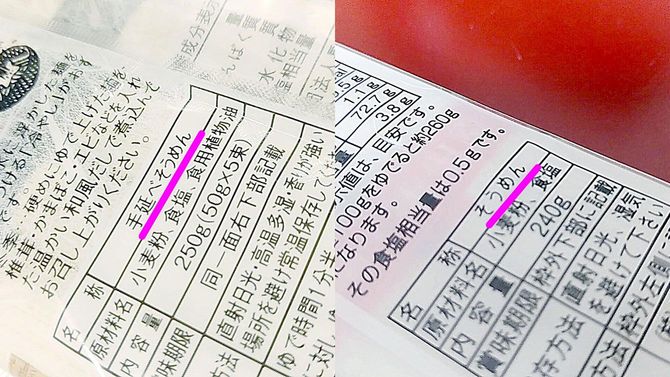 成分表示
量質質物
水化物
塩相当量
硬めにゆで上げた麺を、
椎茸・かまぼこ・エビなどを入れ
た温かい和風だしで煮込んで
お召し上がりください。
名称 手延べそうめん
原材料名 小麦粉、食塩、食用植物油
内容量 250g(50g×5束)
賞味期限 同一面右下部記載
方法 直射日光・高温多湿・香りが強い
場所を避け常温保存して
ゆで時間1分半
72.7g
3.8g
値は、目安です。
100gをゆでると約260g
になります。
その食塩相当量は0.5gです。
名称 そうめん
原材料名 小麦粉、食塩
内容量 240g
賞味期限 枠外下部に記載
存方法 直射日光、湿気
を避けて下さい
枠外左